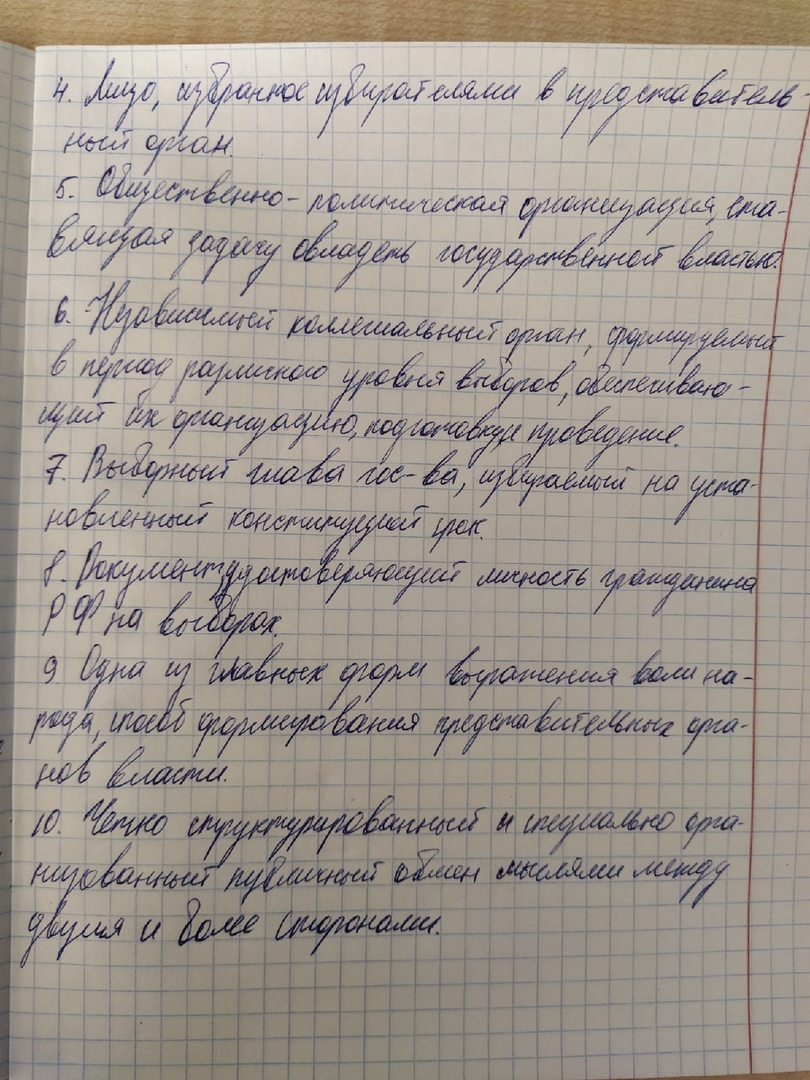 4. Лицо, избранное избирателями в представитель-
ный орган.
5. Общественно-политическая организация, ста-
вящая задачу овладеть государственной властью.
6. Независимый коллегиальный орган, формируемый
в период различного уровня выборов, обеспечиваю-
щий их организацию, подготовку и проведение.
7. Выборный глава гос-ва, избираемый на уста-
новленный конституцией срок.
8. Документ, удостоверяющий личность гражданина
РФ на выборах.
9. Одна из главных форм выражения воли на-
рода, способ формирования представительных орга-
нов власти.
10. Четко структурированный и специально орга-
низованный публичный обмен мыслями между
двумя и более сторонами.